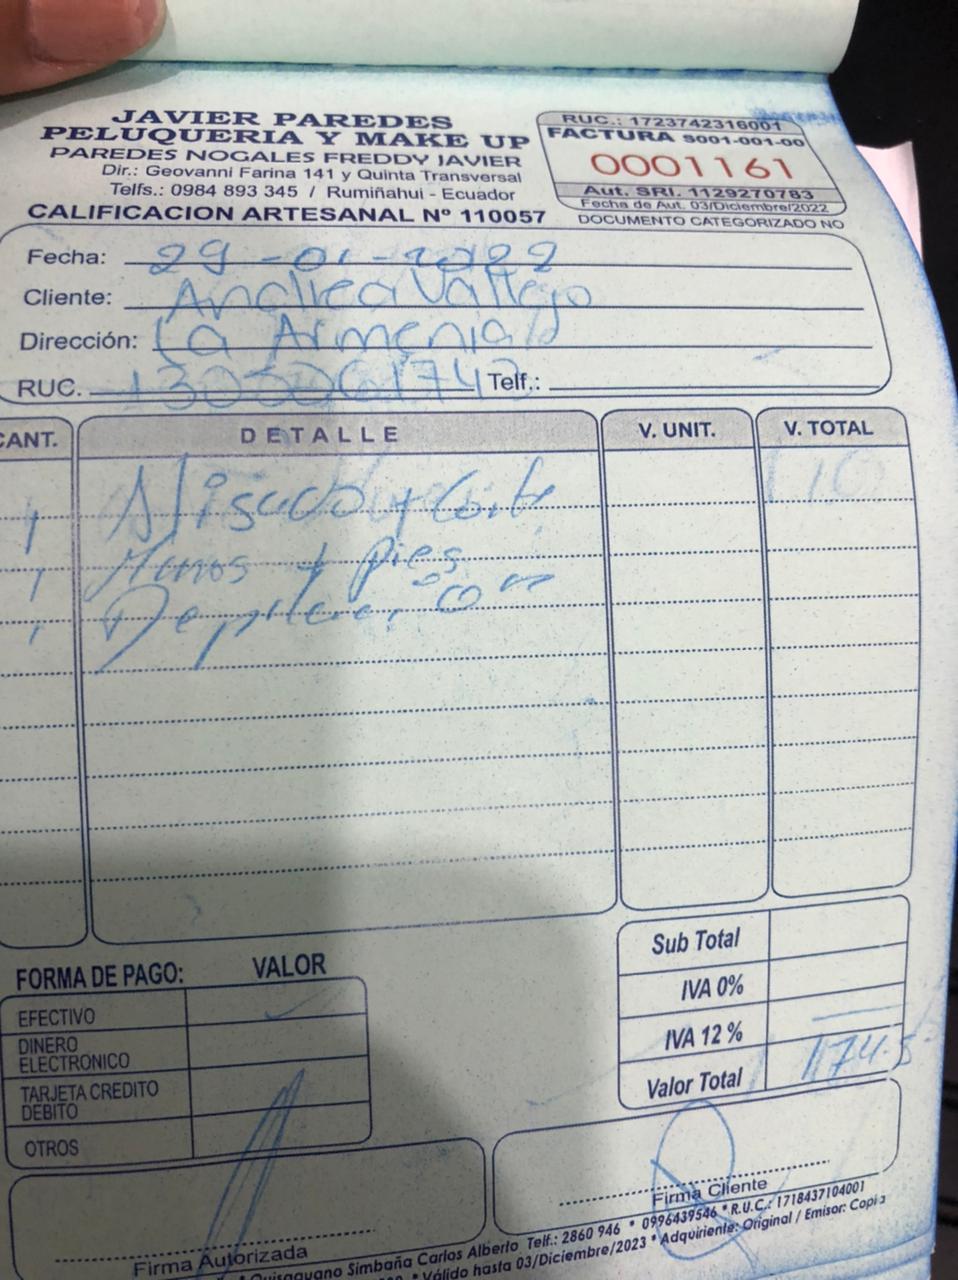 JAVIER PAREDES
PELUQUERIA Y MAKE UP
PAREDES NOGALES FREDDY JAVIER
Dir.: Geovanni Farina 141 y Quinta Transversal
Telfs.: 0984 893 345 / Rumiñahui - Ecuador
CALIFICACION ARTESANAL Nº 110057
RUC.: 1723742316001
FACTURA S001-001-00
0001161
Aut. SRI. 1129270783
Fecha de Aut. 03/Diciembre/2022
DOCUMENTO CATEGORIZADO NO
Fecha: 29-01-2022
Cliente: Andrea Vallejo
Dirección: La Armenia
RUC. Telf.:
CANT. DETALLE V. UNIT. V. TOTAL
1 Alisado y Corte
1 Manos y pies
1 Depilación
FORMA DE PAGO: VALOR
EFECTIVO
DINERO ELECTRONICO
TARJETA CREDITO DEBITO
OTROS
Sub Total
IVA 0%
IVA 12 %
Valor Total 174.5
Firma Autorizada
Firma Cliente
Simbaña Carlos Alberto Telf.: 2860 946 * 0996439546 * R.U.C.: 1718437104001
* Válido hasta 03/Diciembre/2023 * Adquiriente: Original / Emisor: Copia